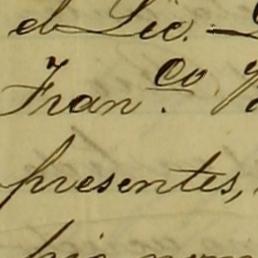 el Lic.
Fran.co
presentes,